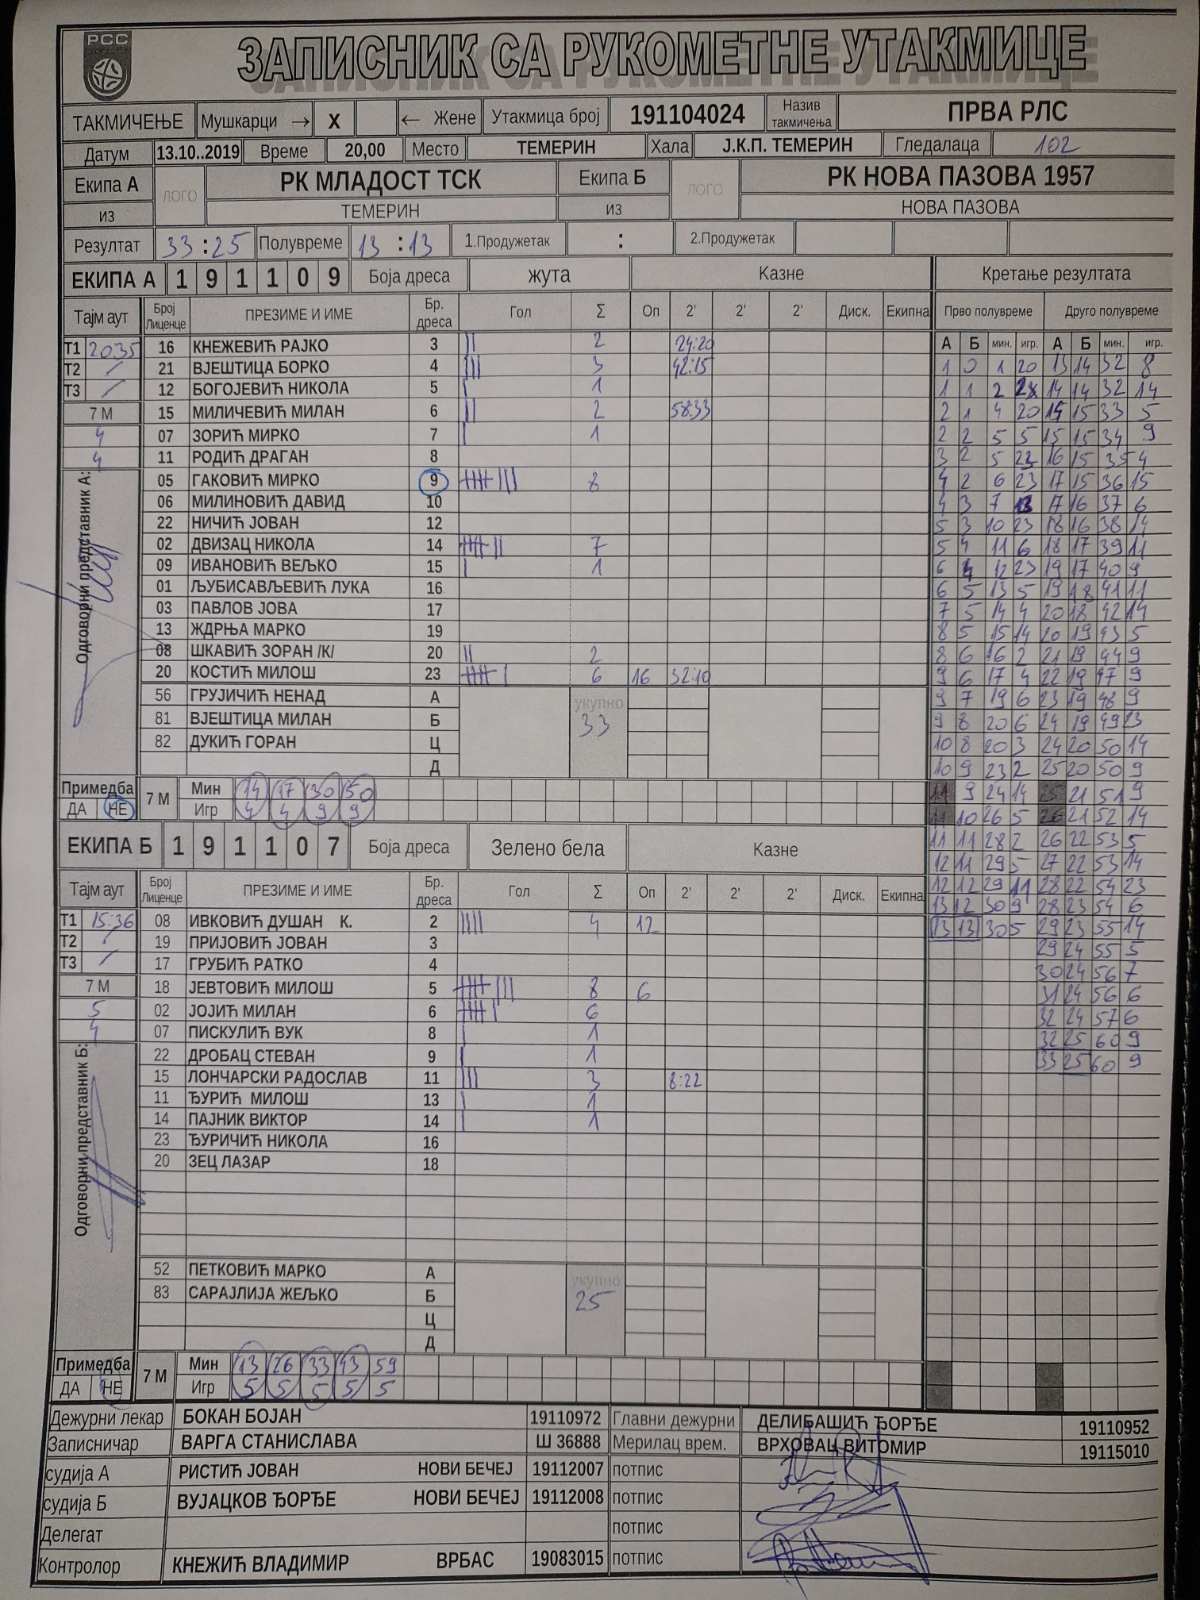 РСС
ЗАПИСНИК СА РУКОМЕТНЕ УТАКМИЦЕ
ТАКМИЧЕЊЕ Мушкарци → X ← Жене Утакмица број 191104024 Назив такмичења ПРВА РЛС
Датум 13.10..2019 Време 20,00 Место ТЕМЕРИН Хала Ј.К.П. ТЕМЕРИН Гледалаца 102
Екипа А ЛОГО РК МЛАДОСТ ТСК Екипа Б ЛОГО РК НОВА ПАЗОВА 1957
из ТЕМЕРИН из НОВА ПАЗОВА
Резултат 33 : 25 Полувреме 13 : 13 1.Продужетак : 2.Продужетак
ЕКИПА А 1 9 1 1 0 9 Боја дреса жута Казне Кретање резултата
Тајм аут Број Лиценце ПРЕЗИМЕ И ИМЕ Бр. дреса Гол Σ Оп 2' 2' 2' Диск. Екипна Прво полувреме Друго полувреме
А Б мин. игр. А Б мин. игр.
Т1 20:35 16 КНЕЖЕВИЋ РАЈКО 3 || 2 24:20 1 0 1 20 13 14 32 8
Т2 / 21 ВЈЕШТИЦА БОРКО 4 ||| 3 42:15 1 1 2 14 14 32 14
Т3 / 12 БОГОЈЕВИЋ НИКОЛА 5 | 1 2 1 4 20 14 15 33 5
7 М 15 МИЛИЧЕВИЋ МИЛАН 6 || 2 58:33 2 2 5 5 15 15 34 9
4 07 ЗОРИЋ МИРКО 7 | 1 3 2 5 23 16 15 35 4
4 11 РОДИЋ ДРАГАН 8 4 2 6 23 17 15 36 15
05 ГАКОВИЋ МИРКО 9 |||| ||| 8 4 3 7 13 17 16 37 6
06 МИЛИНОВИЋ ДАВИД 10 5 3 10 23 18 16 38 14
22 НИЧИЋ ЈОВАН 12 5 4 11 6 18 17 39 11
02 ДВИЗАЦ НИКОЛА 14 |||| || 7 6 4 12 23 19 17 40 9
09 ИВАНОВИЋ ВЕЉКО 15 | 1 6 5 13 5 19 18 41 11
01 ЉУБИСАВЉЕВИЋ ЛУКА 16 7 5 14 4 20 18 42 14
03 ПАВЛОВ ЈОВА 17 8 5 15 14 20 19 43 5
13 ЖДРЊА МАРКО 19 8 6 16 2 21 19 44 9
08 ШКАВИЋ ЗОРАН /К/ 20 || 2 9 6 17 4 22 19 47 9
20 КОСТИЋ МИЛОШ 23 |||| | 6 16 32:10 9 7 19 6 23 19 48 9
56 ГРУЈИЧИЋ НЕНАД А укупно 33 9 8 20 6 24 19 49 23
81 ВЈЕШТИЦА МИЛАН Б 10 8 20 3 24 20 50 14
82 ДУКИЋ ГОРАН Ц 10 9 23 2 25 20 50 9
Д 11 9 24 14 25 21 51 9
Одговорни представник А:
Примедба ДА НЕ 7 М Мин 14 17 30 50 11 10 26 5 26 21 52 14
Игр 4 4 9 9 11 11 28 2 26 22 53 5
ЕКИПА Б 1 9 1 1 0 7 Боја дреса Зелено бела Казне 12 11 29 5 27 22 53 14
Тајм аут Број Лиценце ПРЕЗИМЕ И ИМЕ Бр. дреса Гол Σ Оп 2' 2' 2' Диск. Екипна 12 12 29 11 28 22 54 23
13 12 30 9 28 23 54 6
Т1 15:36 08 ИВКОВИЋ ДУШАН К. 2 |||| 4 12 13 13 30 5 29 23 55 14
Т2 / 19 ПРИЈОВИЋ ЈОВАН 3 29 24 55 5
Т3 / 17 ГРУБИЋ РАТКО 4 30 24 56 7
7 М 18 ЈЕВТОВИЋ МИЛОШ 5 |||| ||| 8 6 31 24 56 6
5 02 ЈОЈИЋ МИЛАН 6 |||| | 6 32 24 57 6
4 07 ПИСКУЛИЋ ВУК 8 | 1 32 25 60 9
22 ДРОБАЦ СТЕВАН 9 | 1 33 25 60 9
15 ЛОНЧАРСКИ РАДОСЛАВ 11 ||| 3 8:22
11 ЂУРИЋ МИЛОШ 13 | 1
14 ПАЈНИК ВИКТОР 14 | 1
23 ЂУРИЧИЋ НИКОЛА 16
20 ЗЕЦ ЛАЗАР 18
52 ПЕТКОВИЋ МАРКО А укупно 25
83 САРАЈЛИЈА ЖЕЉКО Б
Ц
Д
Одговорни представник Б:
Примедба ДА НЕ 7 М Мин 13 26 33 43 59
Игр 5 5 5 5 5
Дежурни лекар БОКАН БОЈАН 19110972 Главни дежурни ДЕЛИБАШИЋ ЂОРЂЕ 19110952
Записничар ВАРГА СТАНИСЛАВА Ш 36888 Мерилац врем. ВРХОВАЦ ВИТОМИР 19115010
судија А РИСТИЋ ЈОВАН НОВИ БЕЧЕЈ 19112007 потпис
судија Б ВУЈАЦКОВ ЂОРЂЕ НОВИ БЕЧЕЈ 19112008 потпис
Делегат потпис
Контролор КНЕЖИЋ ВЛАДИМИР ВРБАС 19083015 потпис